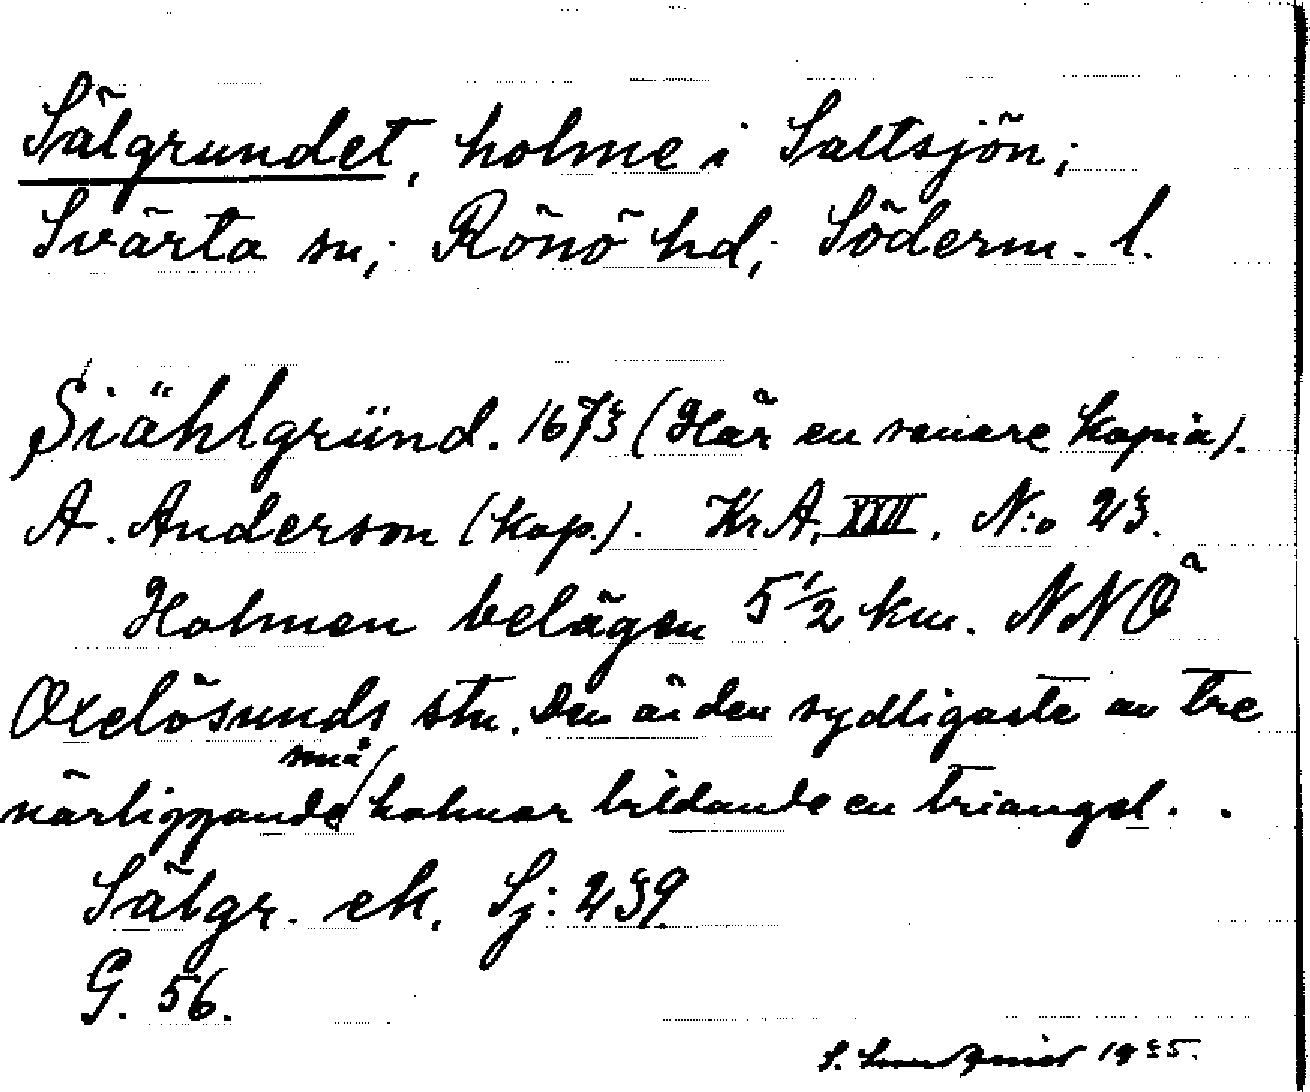 Sälgrundet, holme i Saltsjön;
Svärta sn; Rönö hd; Söderm. l.
Siählgründ. 1673 (Här en senare kopia).
A. Anderson (kop.). Kr.A. XXII. N:o 23.
Holmen belägen 5 1/2 km. NNÖ
Oxelösunds stn. Den är den sydligaste av tre
små
närliggande holmar bildande en triangel.
Sälgr. ek. Sj: 239
G. 56.
S. 1935.